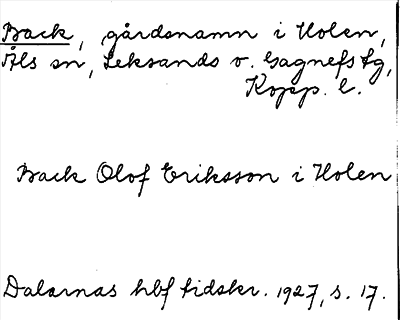 Back, gårdsnamn i Holen,
Åls sn, Leksands o. Gagnefs tg,
Kopp. l.
Back Olof Eriksson i Holen
Dalarnas hbf tidskr. 1927, s. 17.